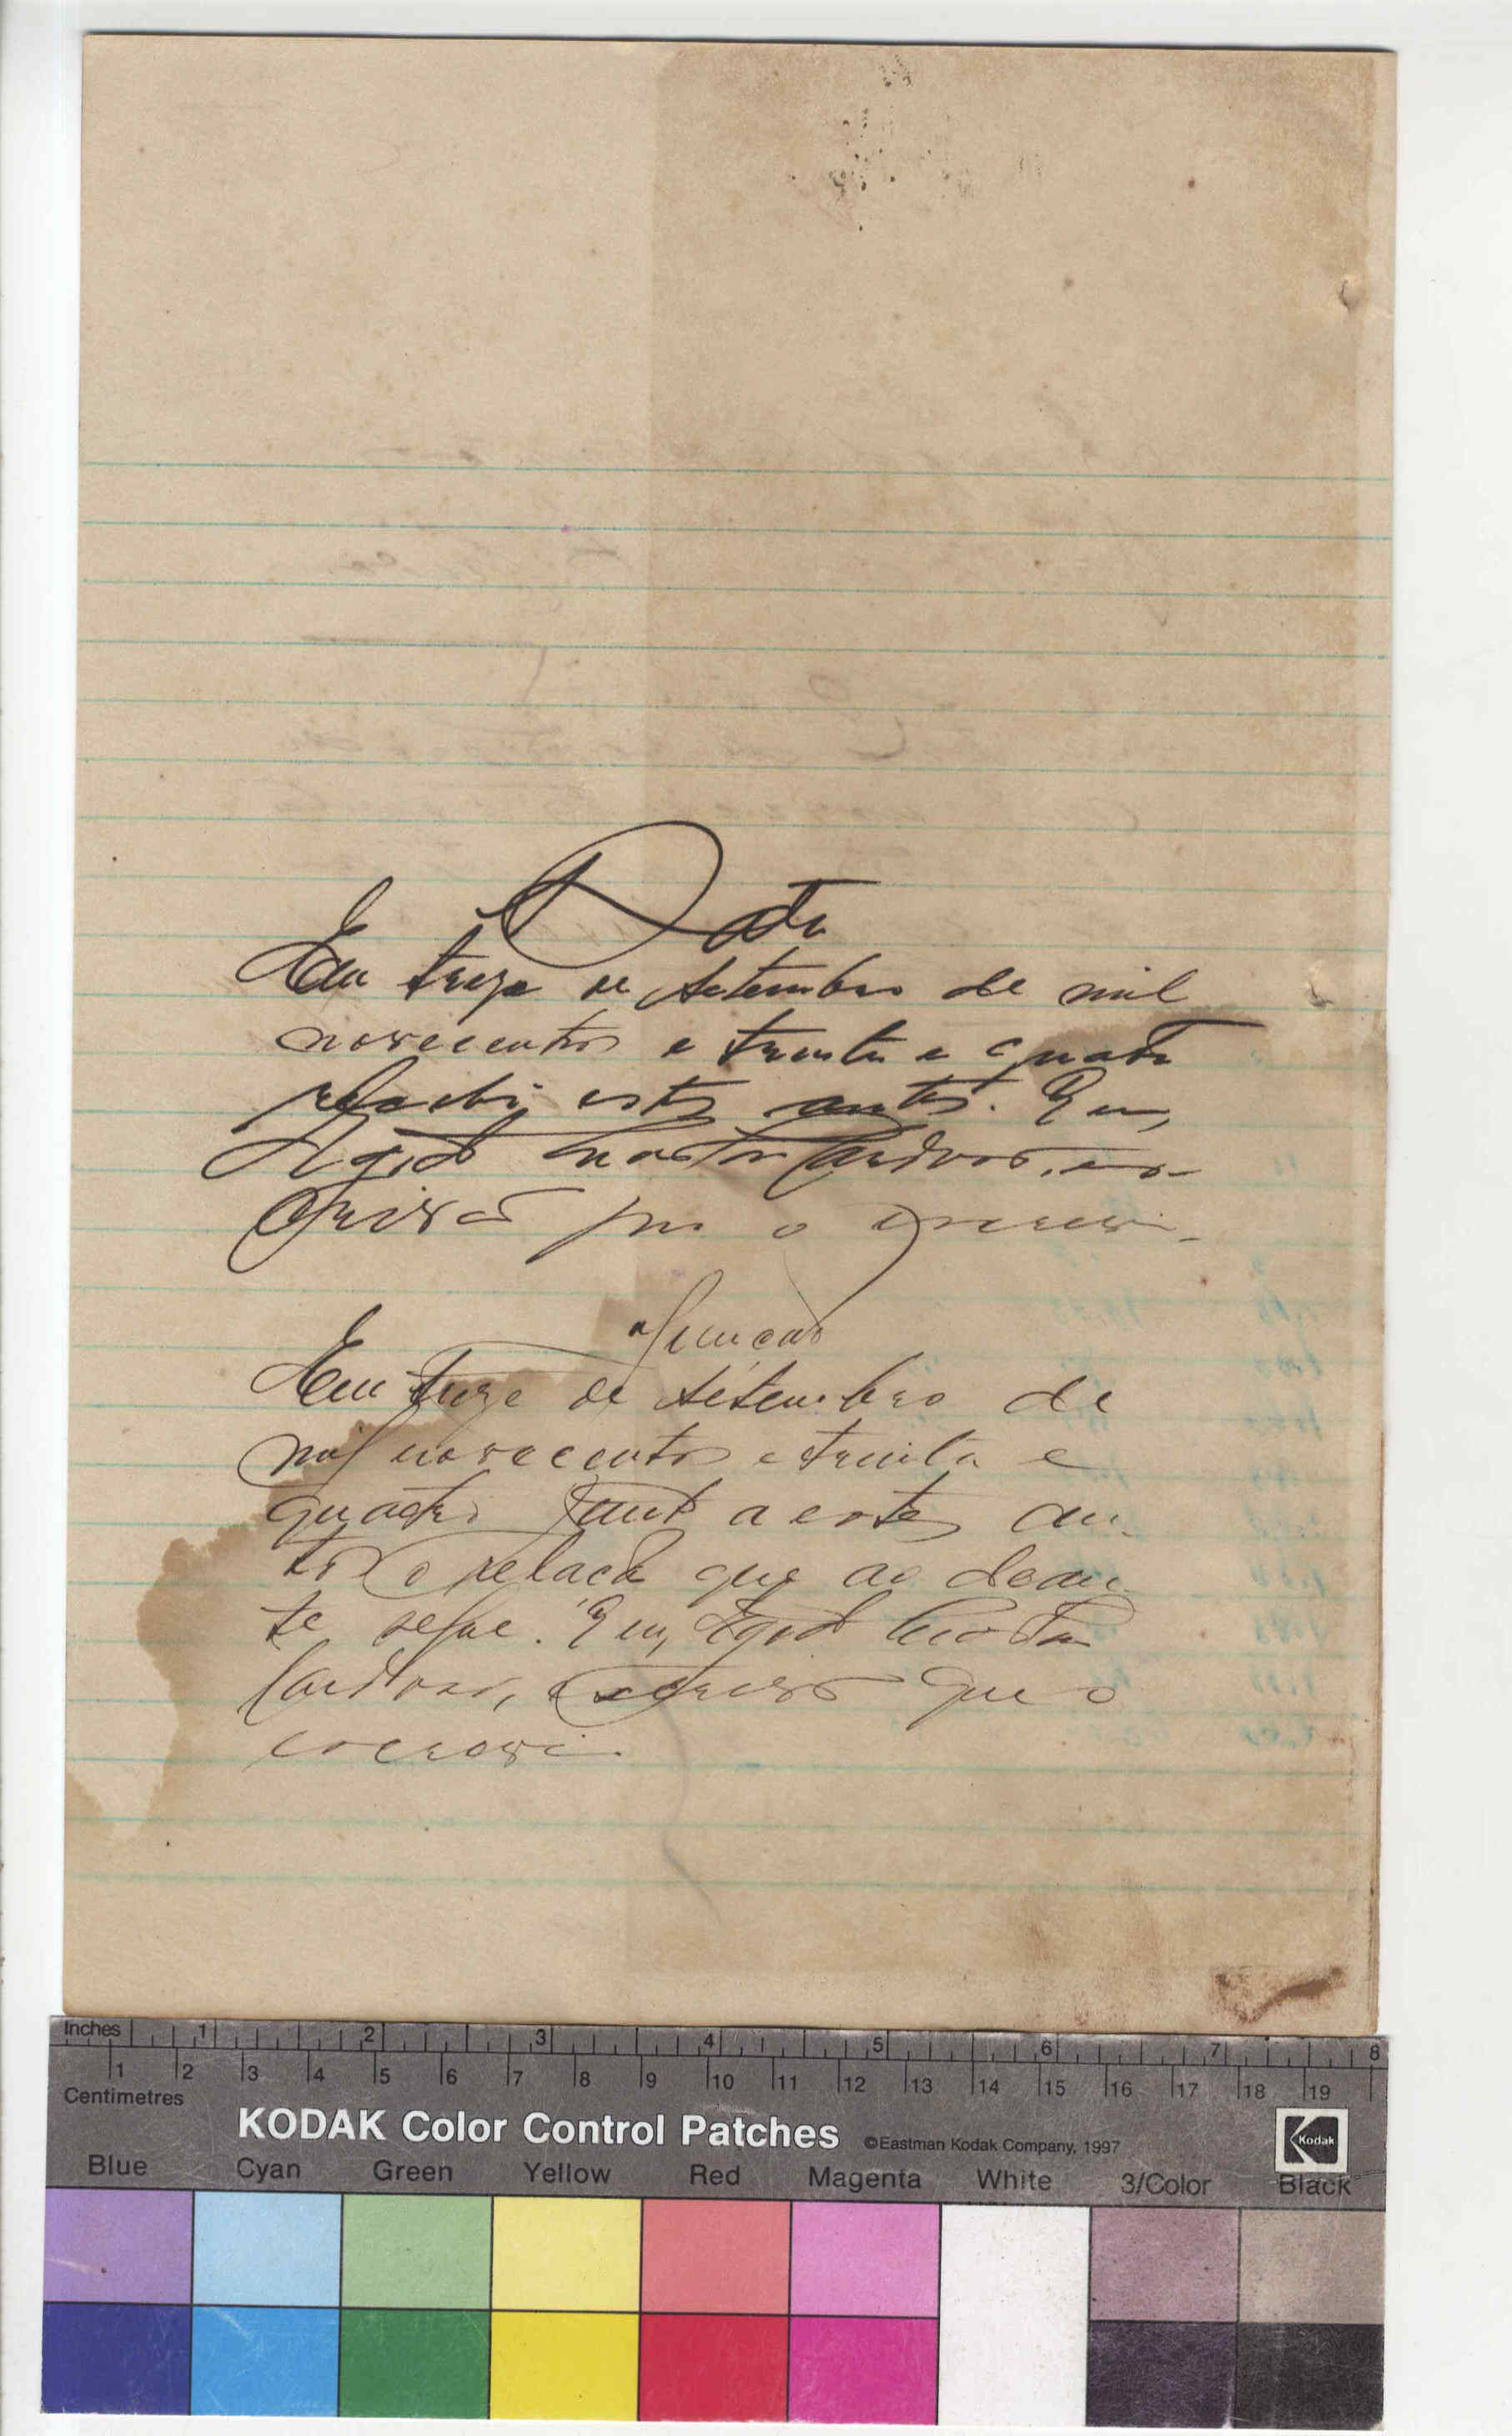 Data
Em treze de setembro de mil
novecentos e trinta e quatro
recebi estes autos. Eu,
Costa Cardoso, es-
crivão que o escrevi.
Juncção
Em treze de setembro de
mil novecentos e trinta e
quatro junto a estes au-
tos a relação que ao dean-
te segue. Eu, Costa
Cardoso, escrivão que o
escrevi.
Inches 1 2 3 4 5 6 7 8
1 2 3 4 5 6 7 8 9 10 11 12 13 14 15 16 17 18 19
Centimetres
KODAK Color Control Patches ©Eastman Kodak Company, 1997 Kodak
Blue Cyan Green Yellow Red Magenta White 3/Color Black